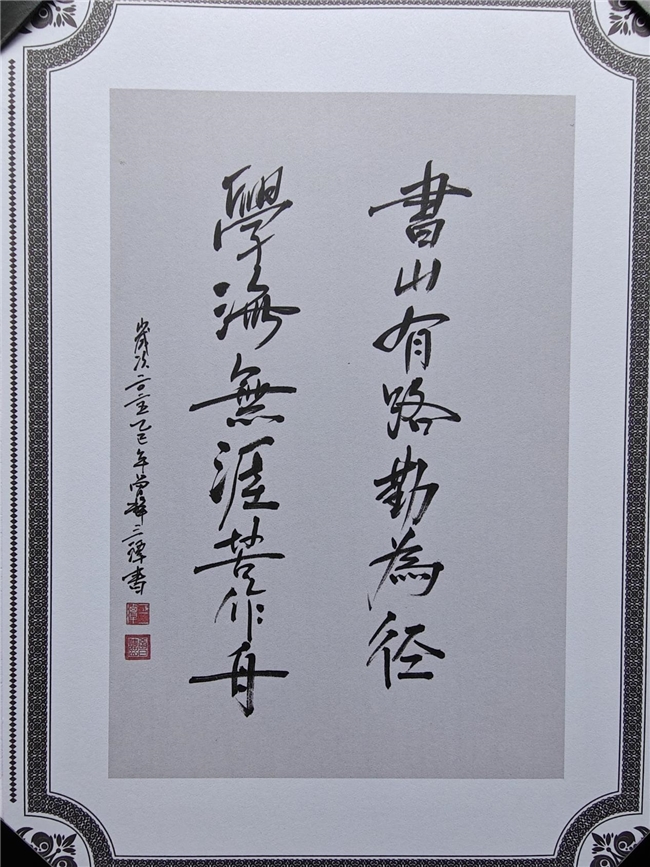 書山有路勤為径
學海無涯苦作舟
歲次二〇二五乙巳年書